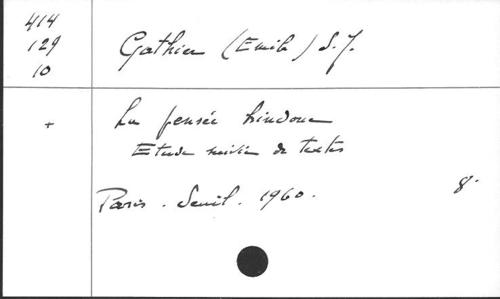 414
129
10
Gathier (Emile) S.J.
+
La pensée hindoue
Etude suivie de textes
Paris. Seuil. 1960.
8°